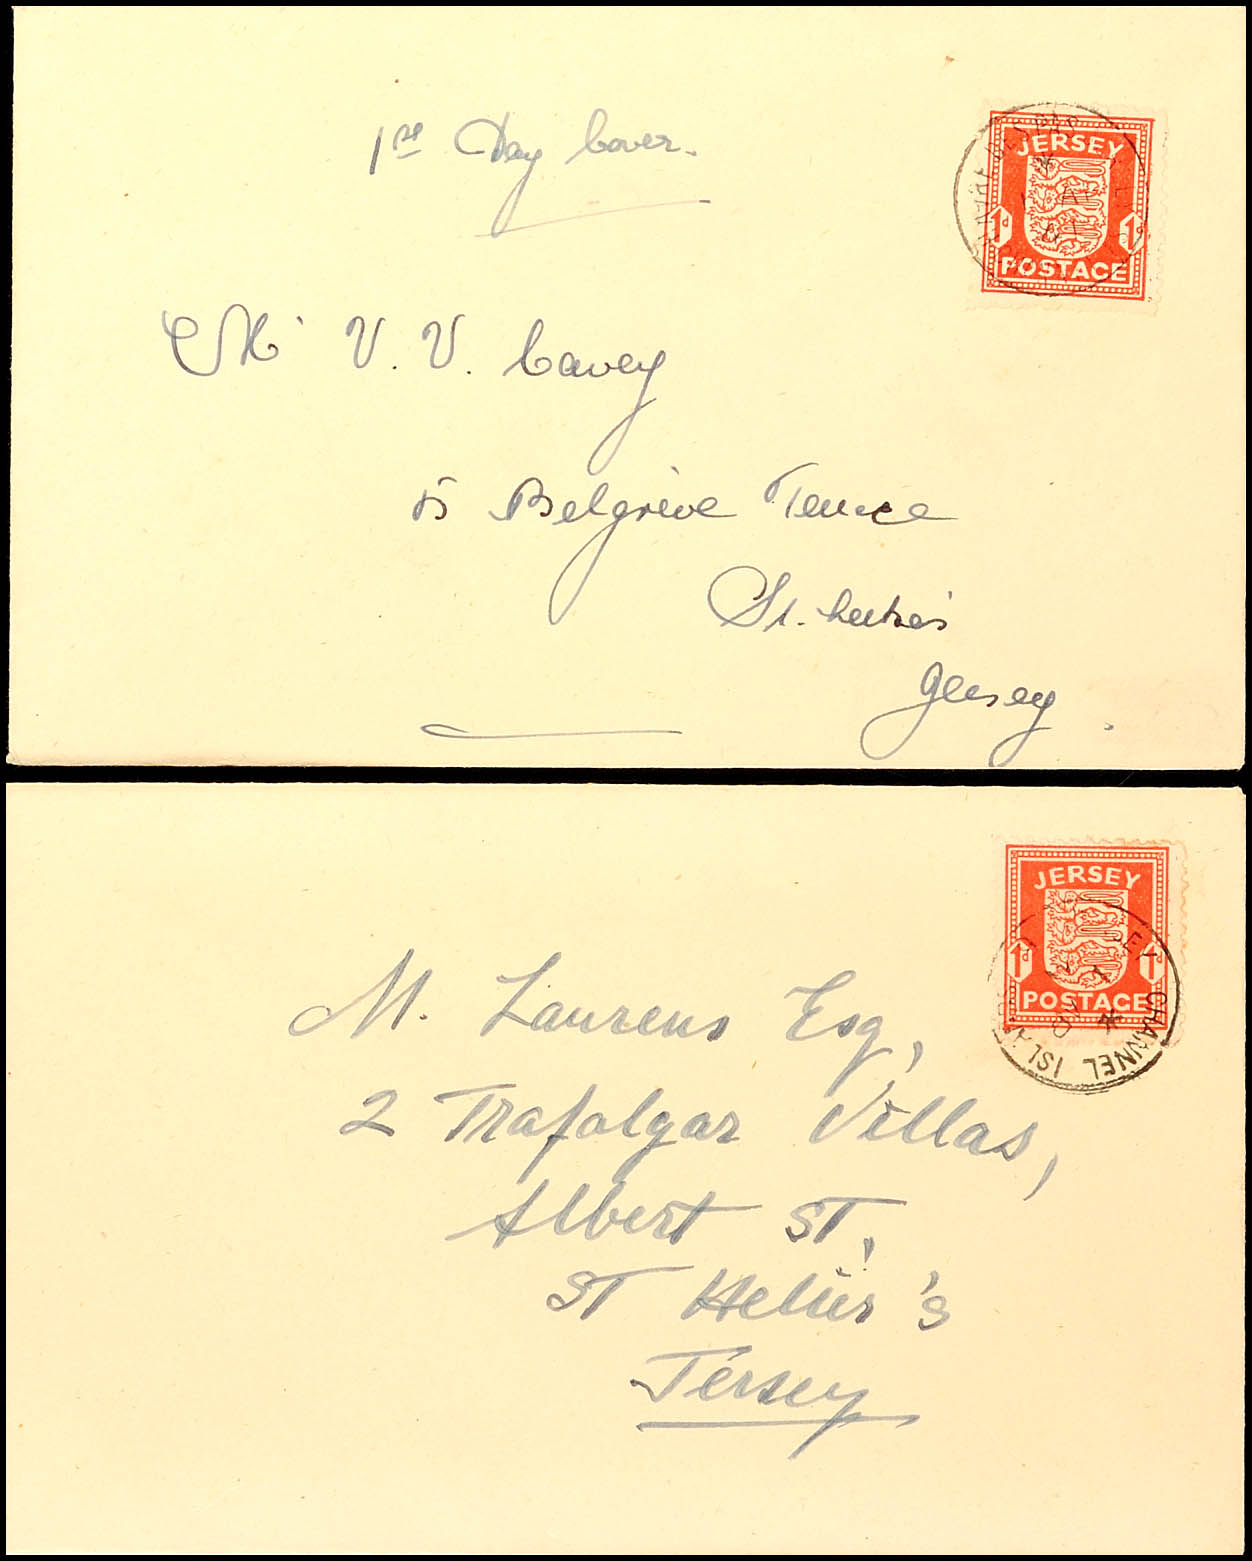 1st Day Cover.
JERSEY
1d 1d
POSTAGE
Mr V. V. Cavey
5 Belgrève Terrace
St. Luke's
Jersey
JERSEY
1d 1d
POSTAGE
CHANNEL ISLA
M. Laurens Esq,
2 Trafalgar Villas,
Albert ST,
ST Helier's
Jersey